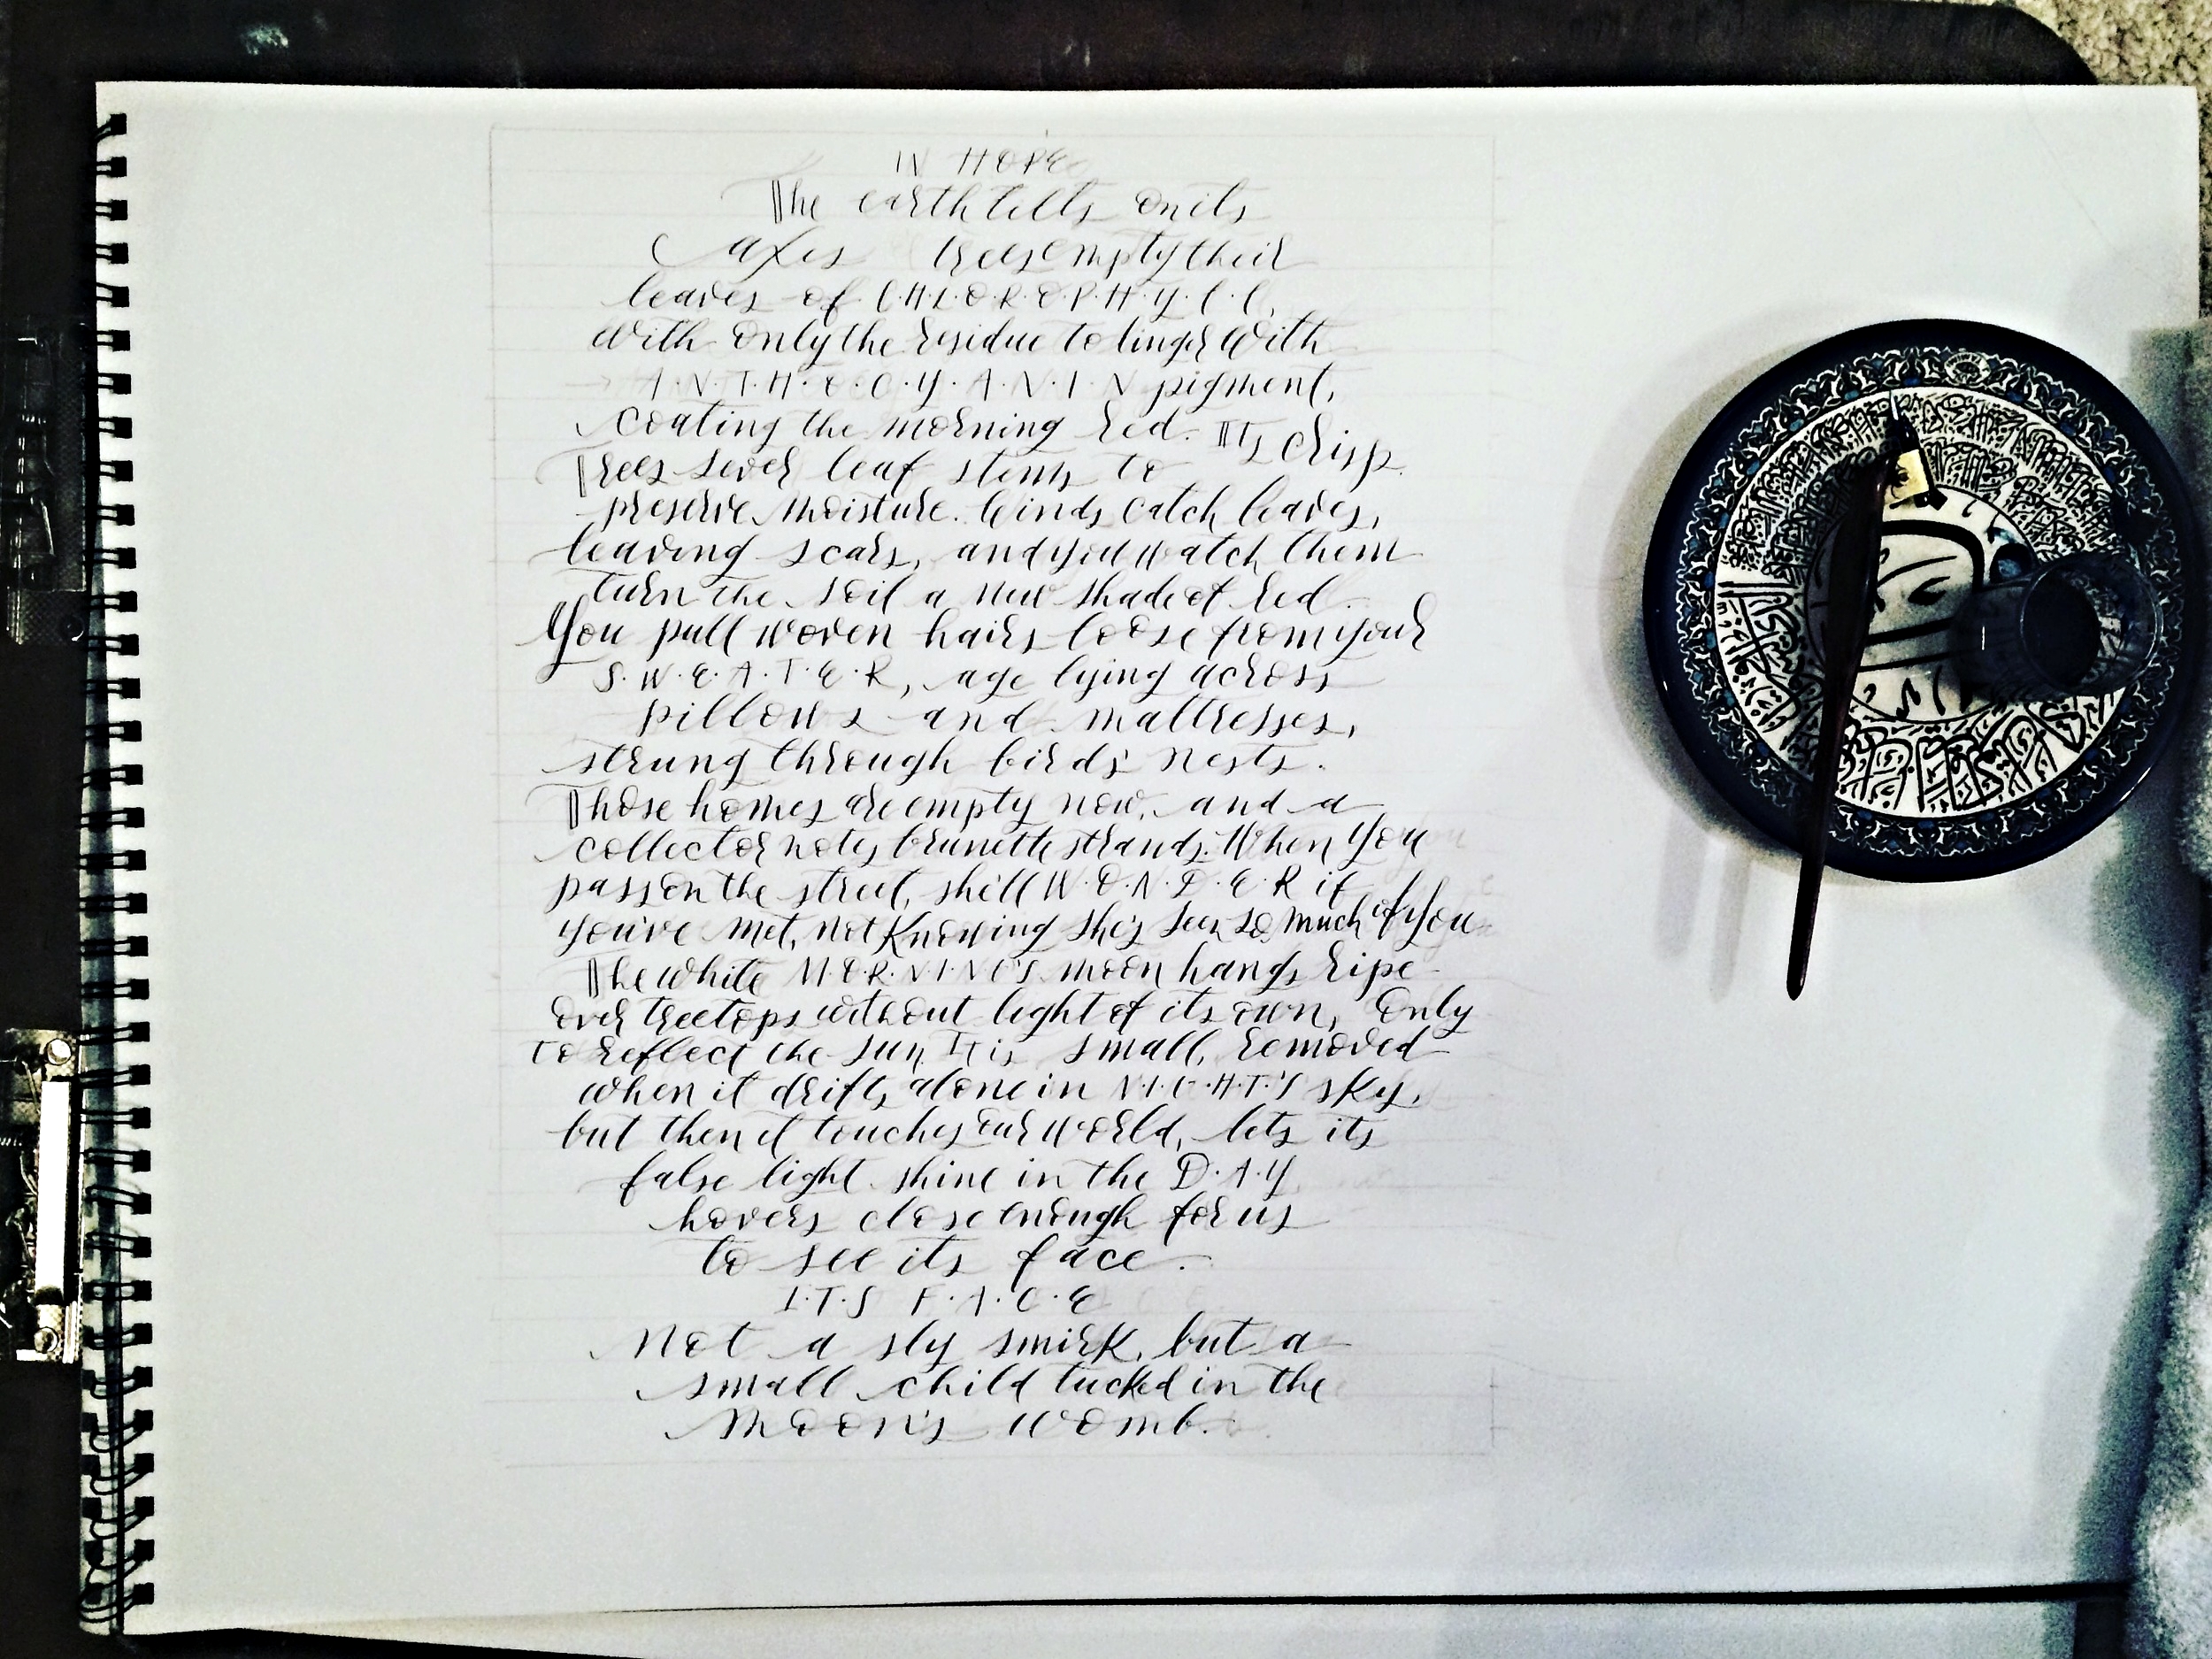 IN HOPE
The earth tilts on its
axis trees empty their
leaves of C.H.L.O.R.O.P.H.Y.L.L,
with only the residue to linger with
A.N.T.H.O.C.Y.A.N.I.N pigment,
coating the morning red. Its crisp.
Trees sever leaf stems to
preserve moisture. Winds catch leaves,
leaving scars, and you watch them
turn the soil a new shade of red.
You pull woven hairs loose from your
S.W.E.A.T.E.R, age lying across
pillows and mattresses,
strung through birds' nests.
Those homes are empty now, and a
collector notes brunette strands. When you
pass on the street, she'll W.O.N.D.E.R if
you've met, not knowing she's seen so much of you
The white M.O.R.N.I.N.G'S moon hangs ripe
over treetops without light of its own, only
to reflect the sun It is small, removed
when it drifts alone in N.I.G.H.T.'S sky,
but then it touches our world, lets its
false light shine in the D.A.Y
hovers close enough for us
to see its face.
I.T.S F.A.C.E
Not a sly smirk, but a
small child tucked in the
moon's womb.